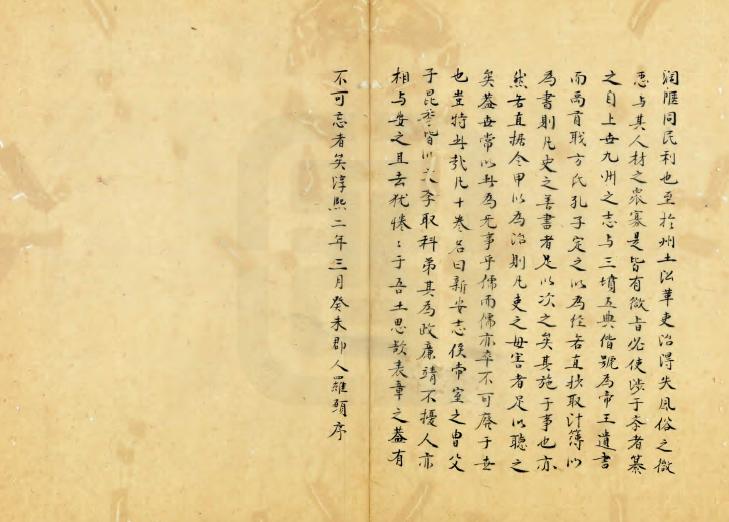 澗匯同民利也至於州土沿革吏治得失風俗之微
惡与其人材之衆寡是皆有微旨必使涉于学者纂
之自上世九州之志与三墳五典偕號為帝王遺書
而禹貢職方氏孔子定之以為経若直抄取計簿以
為書則凡史之善書者足以次之矣其施于事也亦
然若直据令甲以為治則凡吏之毋害者足以聽之
矣蓋世常以此為无事乎儒而儒亦卒不可廢于世
也豈特此哉凡十卷名曰新安志侯帝室之曽父
子昆季皆以次李取科第其為政廉靖不擾人亦
相与安之且去犹惓:于吾土思欲表章之蓋有
不可忘者矣淳熙二年三月癸未郡人羅頴序